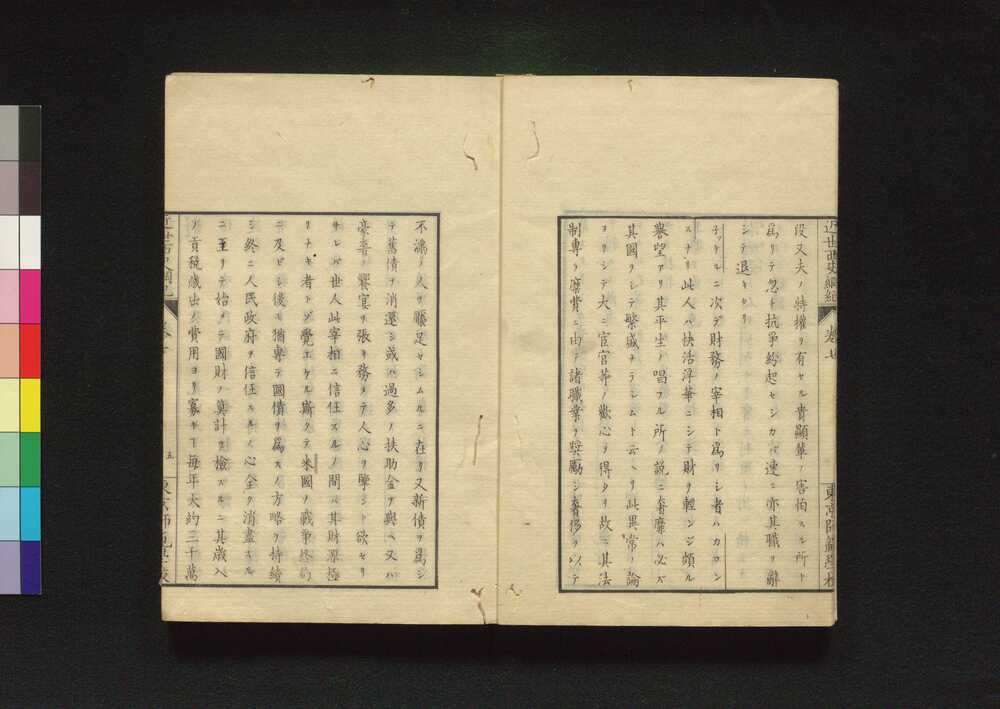 近世西史綱紀 卷七 東京師範學校
段又夫ノ特權ヲ有セル貴顯輩ノ害怕スル所ト
爲リテ忽ト抗爭紛起セシカバ連ニ亦其職ヲ辭
シテ退キヒリ
チゥトルニ次デ財務ノ宰相ト爲リシ者ハカロン
スナリ此人ハ快活浮華ニシテ財ヲ輕ンジ頗ル
譽望アリ其平生ノ唱フル所ノ説ニ奢靡ハ必ズ
其國ヲシテ繁盛ナラシムト云ヘリ此異常ノ論
ヨリシテ大ニ宦官等ノ歡心ヲ得タリ故ニ其法
制專ラ糜費ニ由テ諸職業ヲ奬勵シ奢侈ヲ以テ
不滿ノ人ヲ饜足セシムルニ在リ又新債ヲ爲シ
テ舊債ヲ消還シ或ハ過多ノ扶助金ヲ與ヘ又ハ
豪奢ノ饗宴ヲ張リ務メテ人心ヲ墜シト欲セリ
サレバ世人此宰相ニ信任スルノ間ハ其財源極
リナキ者トゾ覺エケル斯クテ米國ノ戰爭終局
ニ及ビシ後モ猶專テ國債ヲ爲スノ方略ヲ持續
シ終ニ人民政府ヲ信任スルノ心全ク消盡スル
ニ至リテ始メテ國財ノ算計ヲ檢スルニ其歳入
ノ貢税歳出ノ費用ヨリ寡キ丁毎年大約三千萬
五